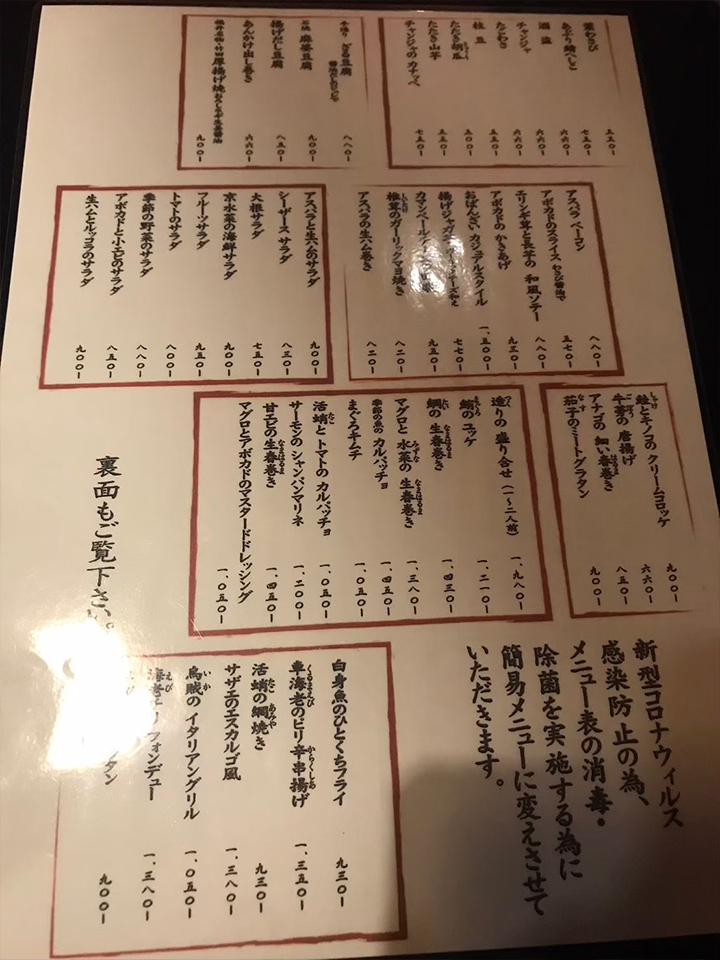 葉わさび 五五〇-
あぶり鯖へしこ 七五〇-
酒盗 六六〇-
チャンジャ 六六〇-
たこわさ 五五〇-
枝豆 五五〇-
たたき胡瓜 五五〇-
たたき山芋 五五〇-
チャンジャのカナッペ 七五〇-
手造り ざる豆腐 八八〇-
石焼 麻婆豆腐 九〇〇-
揚げだし豆腐 八五〇-
あんかけ出し巻き 六六〇-
福井名物・竹田厚揚げ焼 九〇〇-
アスパラ ベーコン 八八〇-
アボカドのスライス わさび醤油で 五七〇-
エリンギ茸と長芋の 和風ソテー 八八〇-
アボカドの かきあげ 九三〇-
おばんざい カジュアルスタイル 一、五〇〇-
揚げジャガ 七七〇-
カマンベール 九五〇-
椎茸のガーリックマヨ焼き 八二〇-
アスパラの生ハム巻き 八二〇-
アスパラと生ハムのサラダ 九〇〇-
シーザース サラダ 八三〇-
大根サラダ 七五〇-
京水菜の海鮮サラダ 九〇〇-
フルーツサラダ 九五〇-
トマトのサラダ 八〇〇-
季節の野菜のサラダ 八八〇-
アボカドと小エビのサラダ 八五〇-
生ハムとルッコラのサラダ 九〇〇-
鮭とキノコの クリームコロッケ 九〇〇-
牛蒡の 唐揚げ 六六〇-
アナゴの 細い春巻き 八五〇-
茄子のミートグラタン 九〇〇-
造りの 盛り合せ（一～二人前） 一、九八〇-
鮪のユッケ 一、二一〇-
鯛の 生春巻き 一、四三〇-
マグロと 水菜の 生春巻き 一、三八〇-
季節の魚の カルパッチョ 一、四五〇-
まぐろキムチ 一、〇五〇-
活蛸と トマトの カルパッチョ 一、〇五〇-
サーモンの シャンパンマリネ 一、二〇〇-
甘エビの 生春巻き 一、四五〇-
マグロとアボカドのマスタードドレッシング 一、〇五〇-
裏面もご覧下さい。
新型コロナウィルス
感染防止の為、
メニュー表の消毒・
除菌を実施する為に
簡易メニューに変えさせて
いただきます。
白身魚のひとくちフライ 九三〇-
車海老のピリ辛串揚げ 一、三五〇-
活蛸の網焼き 九三〇-
サザエのエスカルゴ風 一、三八〇-
烏賊の イタリアングリル 一、〇五〇-
海老 フォンデュー 一、三八〇-
タン 九〇〇-